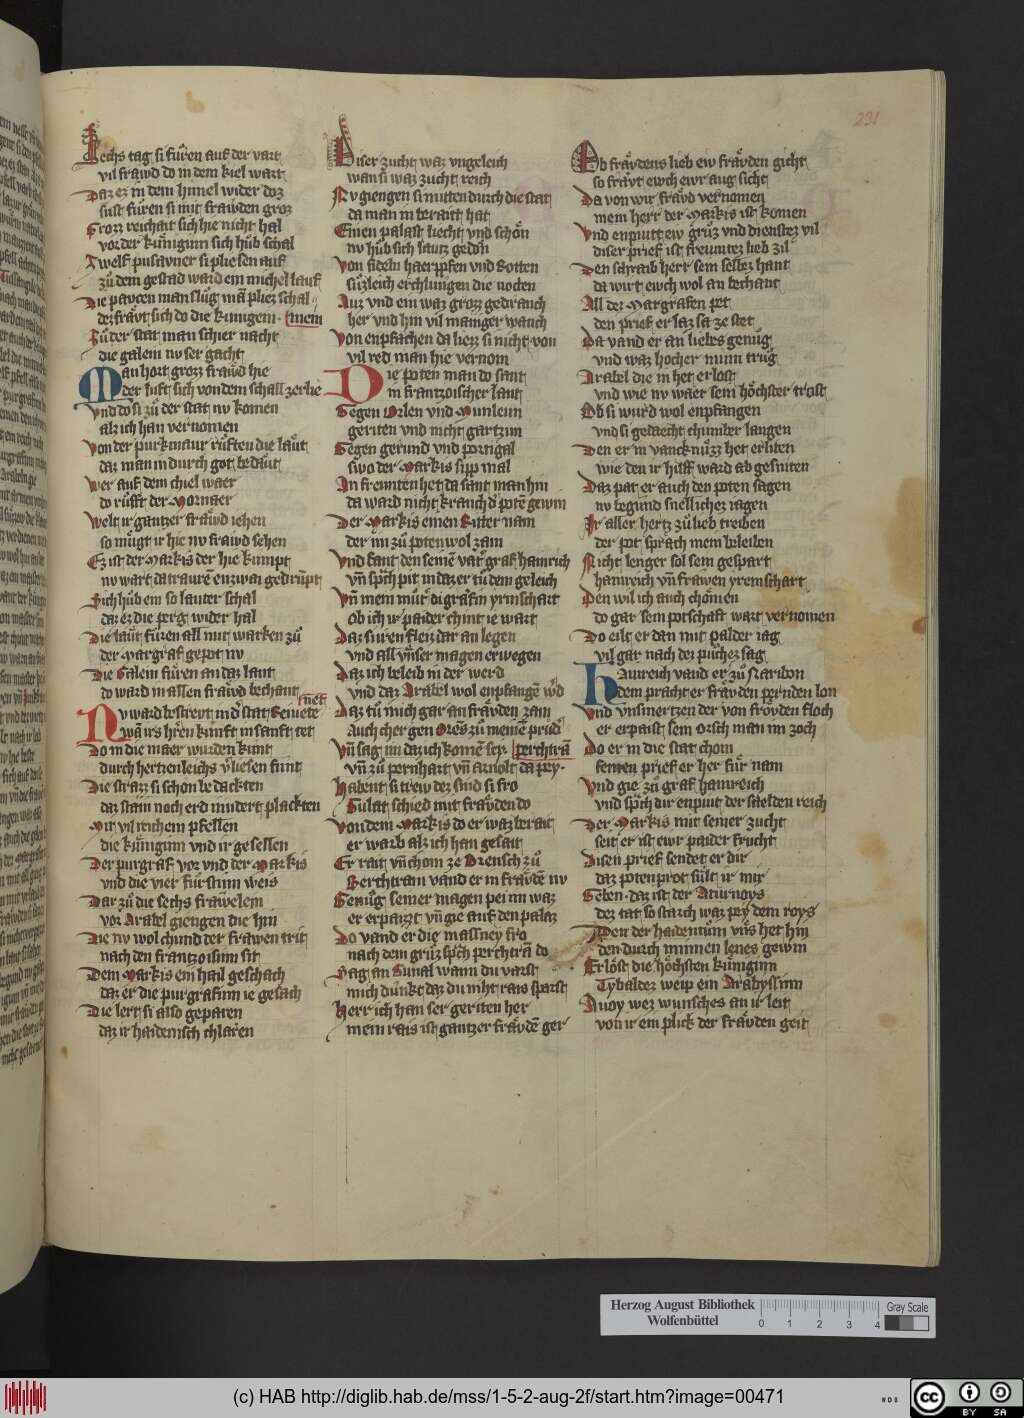 231
Sechs tag si fůren auf der vart
vil fraẘd do in dem kiel wart
Daz ez in dem himel wider doz
sust fůren si mit fraẘden groz
Grozz reichait sich hie nicht hal
vor der kůniginn sich hůb schal
Zwelf pusavner si pliesen auf
zů dem gestad ward ein michel lauf
Die pavcken man slůg mā pliez schal
dez fraẘt sich do die kunigein
mein
Zů der stat man schier nacht
die galein nv ser gacht
Man hort grozz fraẘd hie
der luft sich von dem schall zerlie
Vnd do si zů der stat nv komen
alz ich han vernomen
Von der purkmaur růften die laůt
daz man in durch got bedaůt
Wer auf dem chiel waer
do růfft der Mornaer
Welt ir gantzer fraẘd iehen
so můgt ir hie nv fraẘd sehen
Ez ist der Markis der hie kumpt
nv wart da traurē enzwai gedrůmpt
Sich hůb ein so lauter schal
daz ez die perg wider hal
Die laůt fůren all mit warken zů
der Margraf gepot nv
Die Galein fůren an daz lant
do ward in allen fraẘd bechant
Nv ward bestreut in d' stat Reiviete
do in die maer wurden kunt
durch hertzenleichs v'liesen funt
Die strazz si schon bedackten
daz stain noch erd mindert plackten
Mit vil reichem pfellen
die kůniginn vnd ir gesellen
Der purgraf vor vnd der Markis
vnd die vier fůrstinn weis
Dar zů die sechs frawelein
vor Arabel giengen die hin
Die nv wol chund der frawen trit
nach den frantzoisinn sit
Dem Markis ein hail geschach
daz er die purgrafinn ie gesach
Die lert si also geparen
daz ir haidenisch chlaren
Diser zucht waz vngeleich
wan si waz zucht reich
Nv giengen si mitten durch die stat
da man in berait hat
Einen palast liecht vnd schön
nv hůb sich lautz gedön
Von fideln haerpfen vnd Rotten
sůzleich erchlungen die noten
Auz vnd ein waz grozz gedrauch
her vnd hin vil maniger wauch
Von enpfachen da liezz si nicht von
vil red man hie vernom
Die poten man do sant
in frantzoischer lant
Gegen Orlen vnd Munleun
geriten vnd nicht gartzun
Gegen gerund vnd portigal
swo der Markis sipp mal
An freunten het da sant man hin
da ward nicht kranch d' potē gewin
Der Markis einen Ritter nam
der im zů poten wol zam
Vnd sant den seinē vat' graf hainrich
vn̄ sp̄ch pit in daz er tů dem geleich
Vn̄ mein můt' di grāfin yrmschart
ob ich ir paider chint ie wart
Daz si iren fleiz dar an legen
vnd all vn̄ser magen erwegen
Daz ich beleib in der werd
vnd daz Arabel wol enpfangē w'd
Daz tů mich gar an fraẘden zam
Auch cher gen Ores zů meinē průd'
Vn̄ sag im daz ich komē sey
perchtrā
vn̄ zů pernhart vn̄ arnolt da pey
Habent si trew dez sind si fro
Sulat schied mit fraẘden do
Von dem Markis do er waz berait
er warb alz ich han gesait
Er rait vn̄ chom ze Orensch zů
Berchtram vand er in fraẘdē nv
Genůg seiner magen pei im waz
er erpaizt vn̄ gie auf den palaz
Do vand er die massney fro
nach dem grůz sp̄ch perchtrā do
Sag an Sunal wann du varst
mich důnkt daz du niht rais sparst
Herr ich han ser geriten her
mein rais ist gantzer fraẘdē ger
Ob fraẘdens lieb eiv fraẘden gicht
so fraẘt ewch ewr aug sicht
Da von wir fraẘd vernomen
mein herr der Markis ist komen
Vnd enputt ew grůz vnd dienstez vil
diser prief ist freuntez lieb zil
Den schraib herr sein selbez hant
da wirt ewch wol an bechant
All dez Margrafen pet
den prief er laz sa ze stet
Da vand er an liebes genůg
vnd waz hocher minn trůg
Arabel die in het erlost
vnd wie nv waer sein höchster trost
Ob si wurd wol enpfangen
vnd si gedaecht chumber langen
Den er in vancknůzz het erliten
wie den ir hilff ward ab gesniten
Daz pat er auch den poten sagen
nv begund snellichez iagen
Ir aller hertz zů lieb treiben
der pot sprach mein beleiben
Nicht lenger sol sein gespart
hainreich vn̄ frawen yremschart
Den wil ich auch chömen
do gar sein potschaft wart vernomen
Do eilt er dan mit palder iag
vil gar nach dez půchez sag
Hainreich vand er zů Naribon
dem pracht er fraẘden pernden lon
Vnd vnsmertzen der von fröẘden floch
er erpaist sein orsch man im zoch
Do er in die stat chom
seinen prief er her fůr nam
Vnd gie zů graf hainreich
vnd sp̄ch dir enpiut der saelden reich
Der Markis mit seiner zucht
seit er ist ewr paider frucht
Disen prief sendet er dir
daz potenprot sůlt ir mir
Geben. daz ist der Aturnoys
dez tat so starch waz pey dem roys
Den der haidentům vn̄s het hin
den durch minnen lenes gewin
Erlost die höchsten kůniginn
Tybaldez weip ein Arabyssinn
Auoy wez wunsches an ir leit
von ir ein plick der fraẘden geit
Herzog August Bibliothek
Wolfenbüttel
Gray Scale
0 1 2 3 4
(c) HAB http://diglib.hab.de/mss/1-5-2-aug-2f/start.htm?image=00471
BY SA